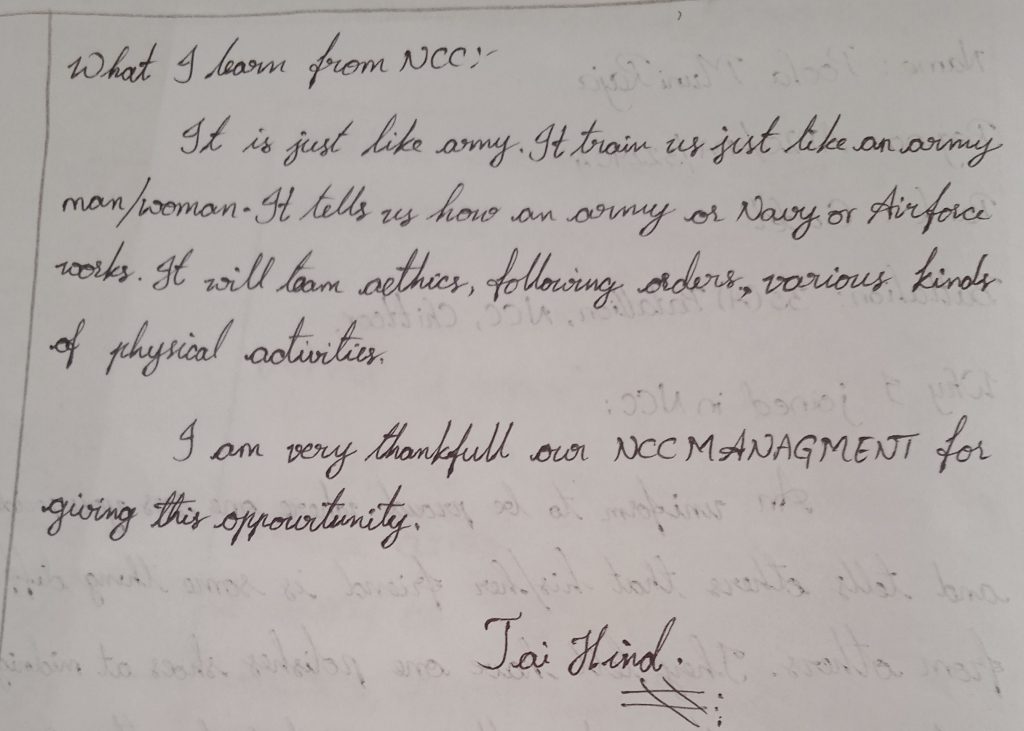 What I learn from NCC:-
It is just like army. It train us jist like an army
man/woman. It tells us how an army or Navy or Airforce
works. It will team aethics, following orders, various kinds
of physical activities.
I am very thankfull our NCC MANAGMENT for
giving this oppourtunity.
Jai Hind.